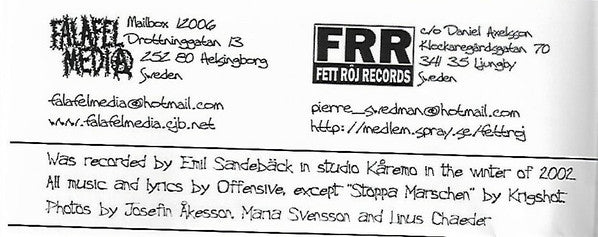 FALAFEL
MEDIA
Mailbox 12006
Drottninggatan 13
252 80 Helsingborg
Sweden
falafelmedia@hotmail.com
www.falafelmedia.cjb.net
FRR
FETT RÖJ RECORDS
c/o Daniel Axelsson
Klockaregårdsgatan 70
341 35 Ljungby
Sweden
pierre_swedman@hotmail.com
http://medlem.spray.se/fettroj
Was recorded by Emil Sandebäck in studio Kåremo in the winter of 2002
All music and lyrics by Offensive, except "Stoppa Marschen" by Krigshot.
Photos by Josefin Åkesson, Maria Svensson and Linus Chaeder